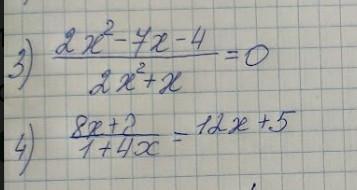 3) (2x²-7x-4)/(2x²+x) = 0
4) (8x+2)/(1+4x) = 12x+5